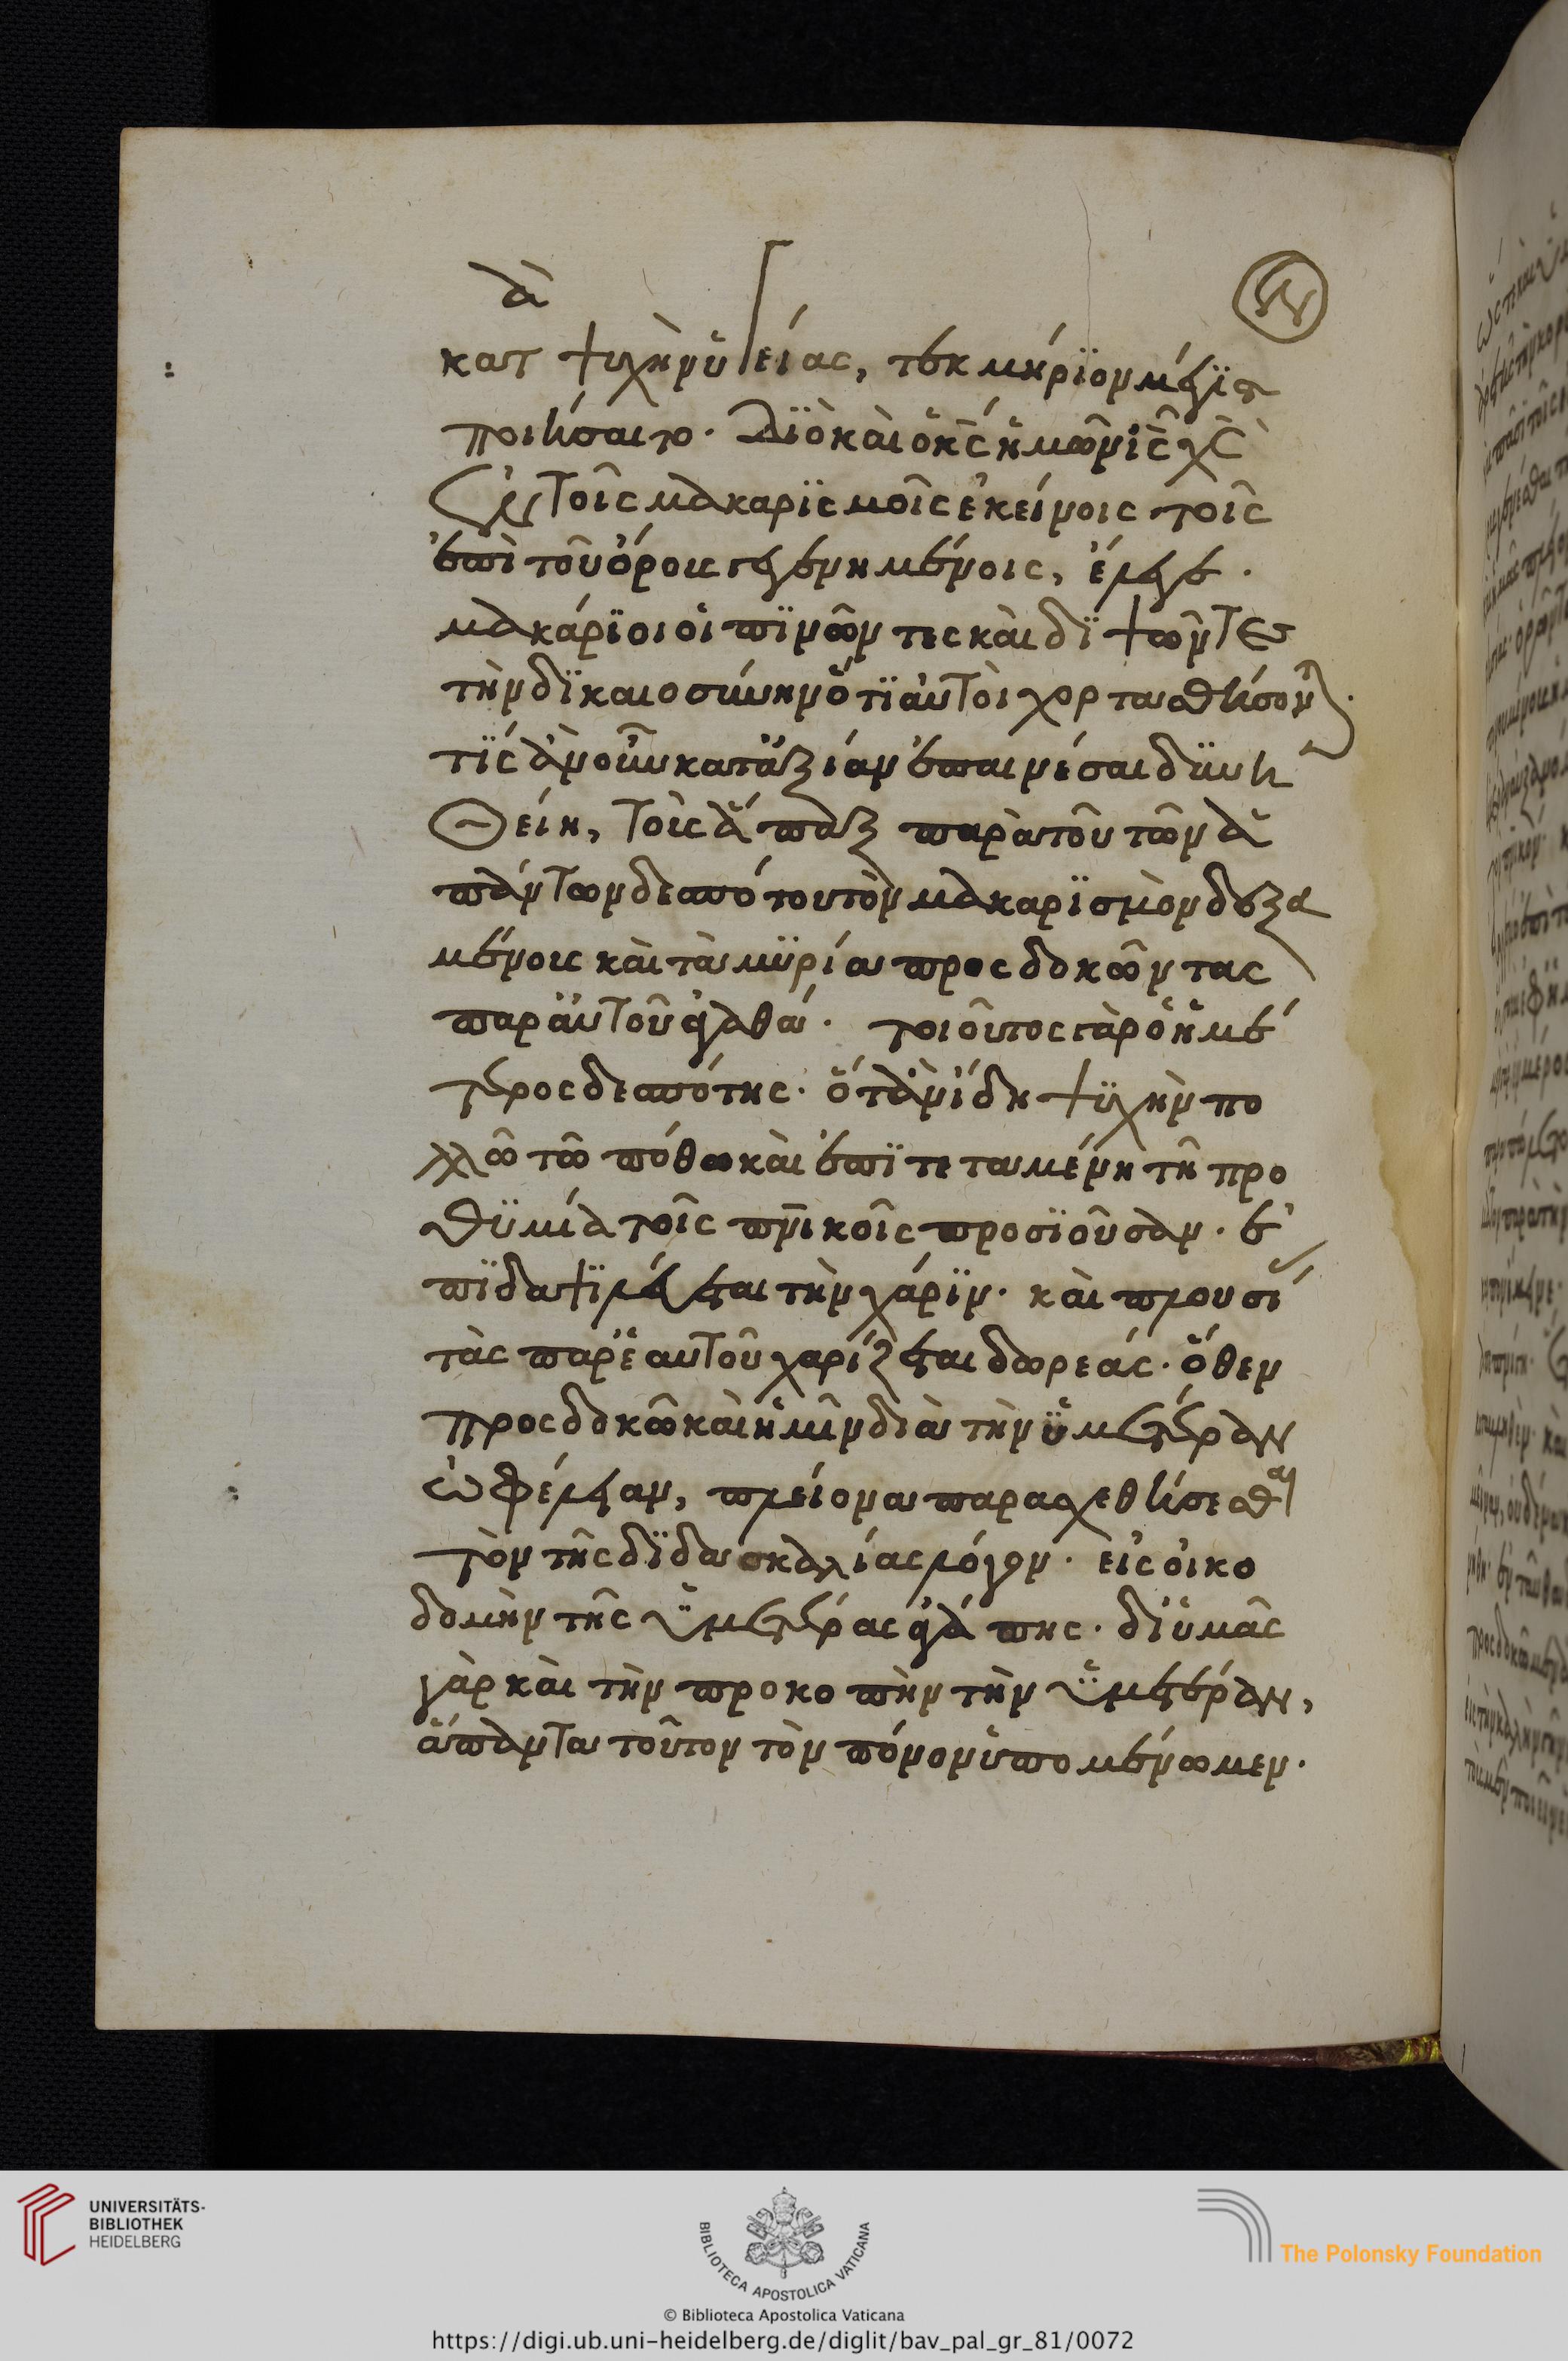 δὰ
κατ ψυχὴν ὑγείας, τεκμήριον μέγϊστ
ποιήσαιτο. Διὸ καὶ ὁ κ̅ς ἡμῶν ι̅ς χ̅ς
ἐν τοῖς μακαρϊσμοῖς ἐκείνοις τοῖς
ἐπὶ τοῦ ὄρους γεγενημένοις, ἔλεγε.
μακάρϊοι οἱ πϊνῶντες καὶ δϊψῶντες
τὴν δϊκαιοσύνην ὅτϊ αὐτοὶ χορτασθήσοντ.
τΐς ἂν οὖν κατ' ἀξίαν ἐπαινέσαι δϋνη
θείη, τοὺς ἅπαξ παρὰ τοῦ τῶν ἁ
πάντων δεσπότου τὸν μακαρϊσμὸν δεξα
μένους καὶ τὰ μϋρία προσδοκῶντας
παρ' αὐτοῦ ἀγαθά. τοιοῦτος γὰρ ὁ ἡμέ
τερος δεσπότης. ὅταν ἴδη ψϋχὴν πο
λλῶ τῶ πόθω καὶ ἐπϊτεταμένη τῆ προ
θϋμία τοῖς πν̅ικοῖς προσϊοῦσαν. ἐ
πϊδαψϊλεύεται τὴν χάρϊν. καὶ πλουσί
τὰς παρ' ἑαυτοῦ χαρίζεται δωρεάς. ὅθεν
προσδοκῶ καὶ ἡμῖν διὰ τὴν ϋμετέραν
ὠφέλειαν, πλείονα παρασχεθήσεσθαι
τὸν τῆς δϊδασκαλίας λόγον. εἰς οἰκο
δομὴν τῆς ϋμετέρας ἀγάπης. δι' ὑμᾶς
γὰρ καὶ τὴν προκοπὴν τὴν ϋμετέραν,
ἅπαντα τοῦτον τὸν πόνον ὑπομένωμεν.
UNIVERSITÄTS-
BIBLIOTHEK
HEIDELBERG
BIBLIOTECA APOSTOLICA VATICANA
The Polonsky Foundation
© Biblioteca Apostolica Vaticana
https://digi.ub.uni-heidelberg.de/diglit/bav_pal_gr_81/0072